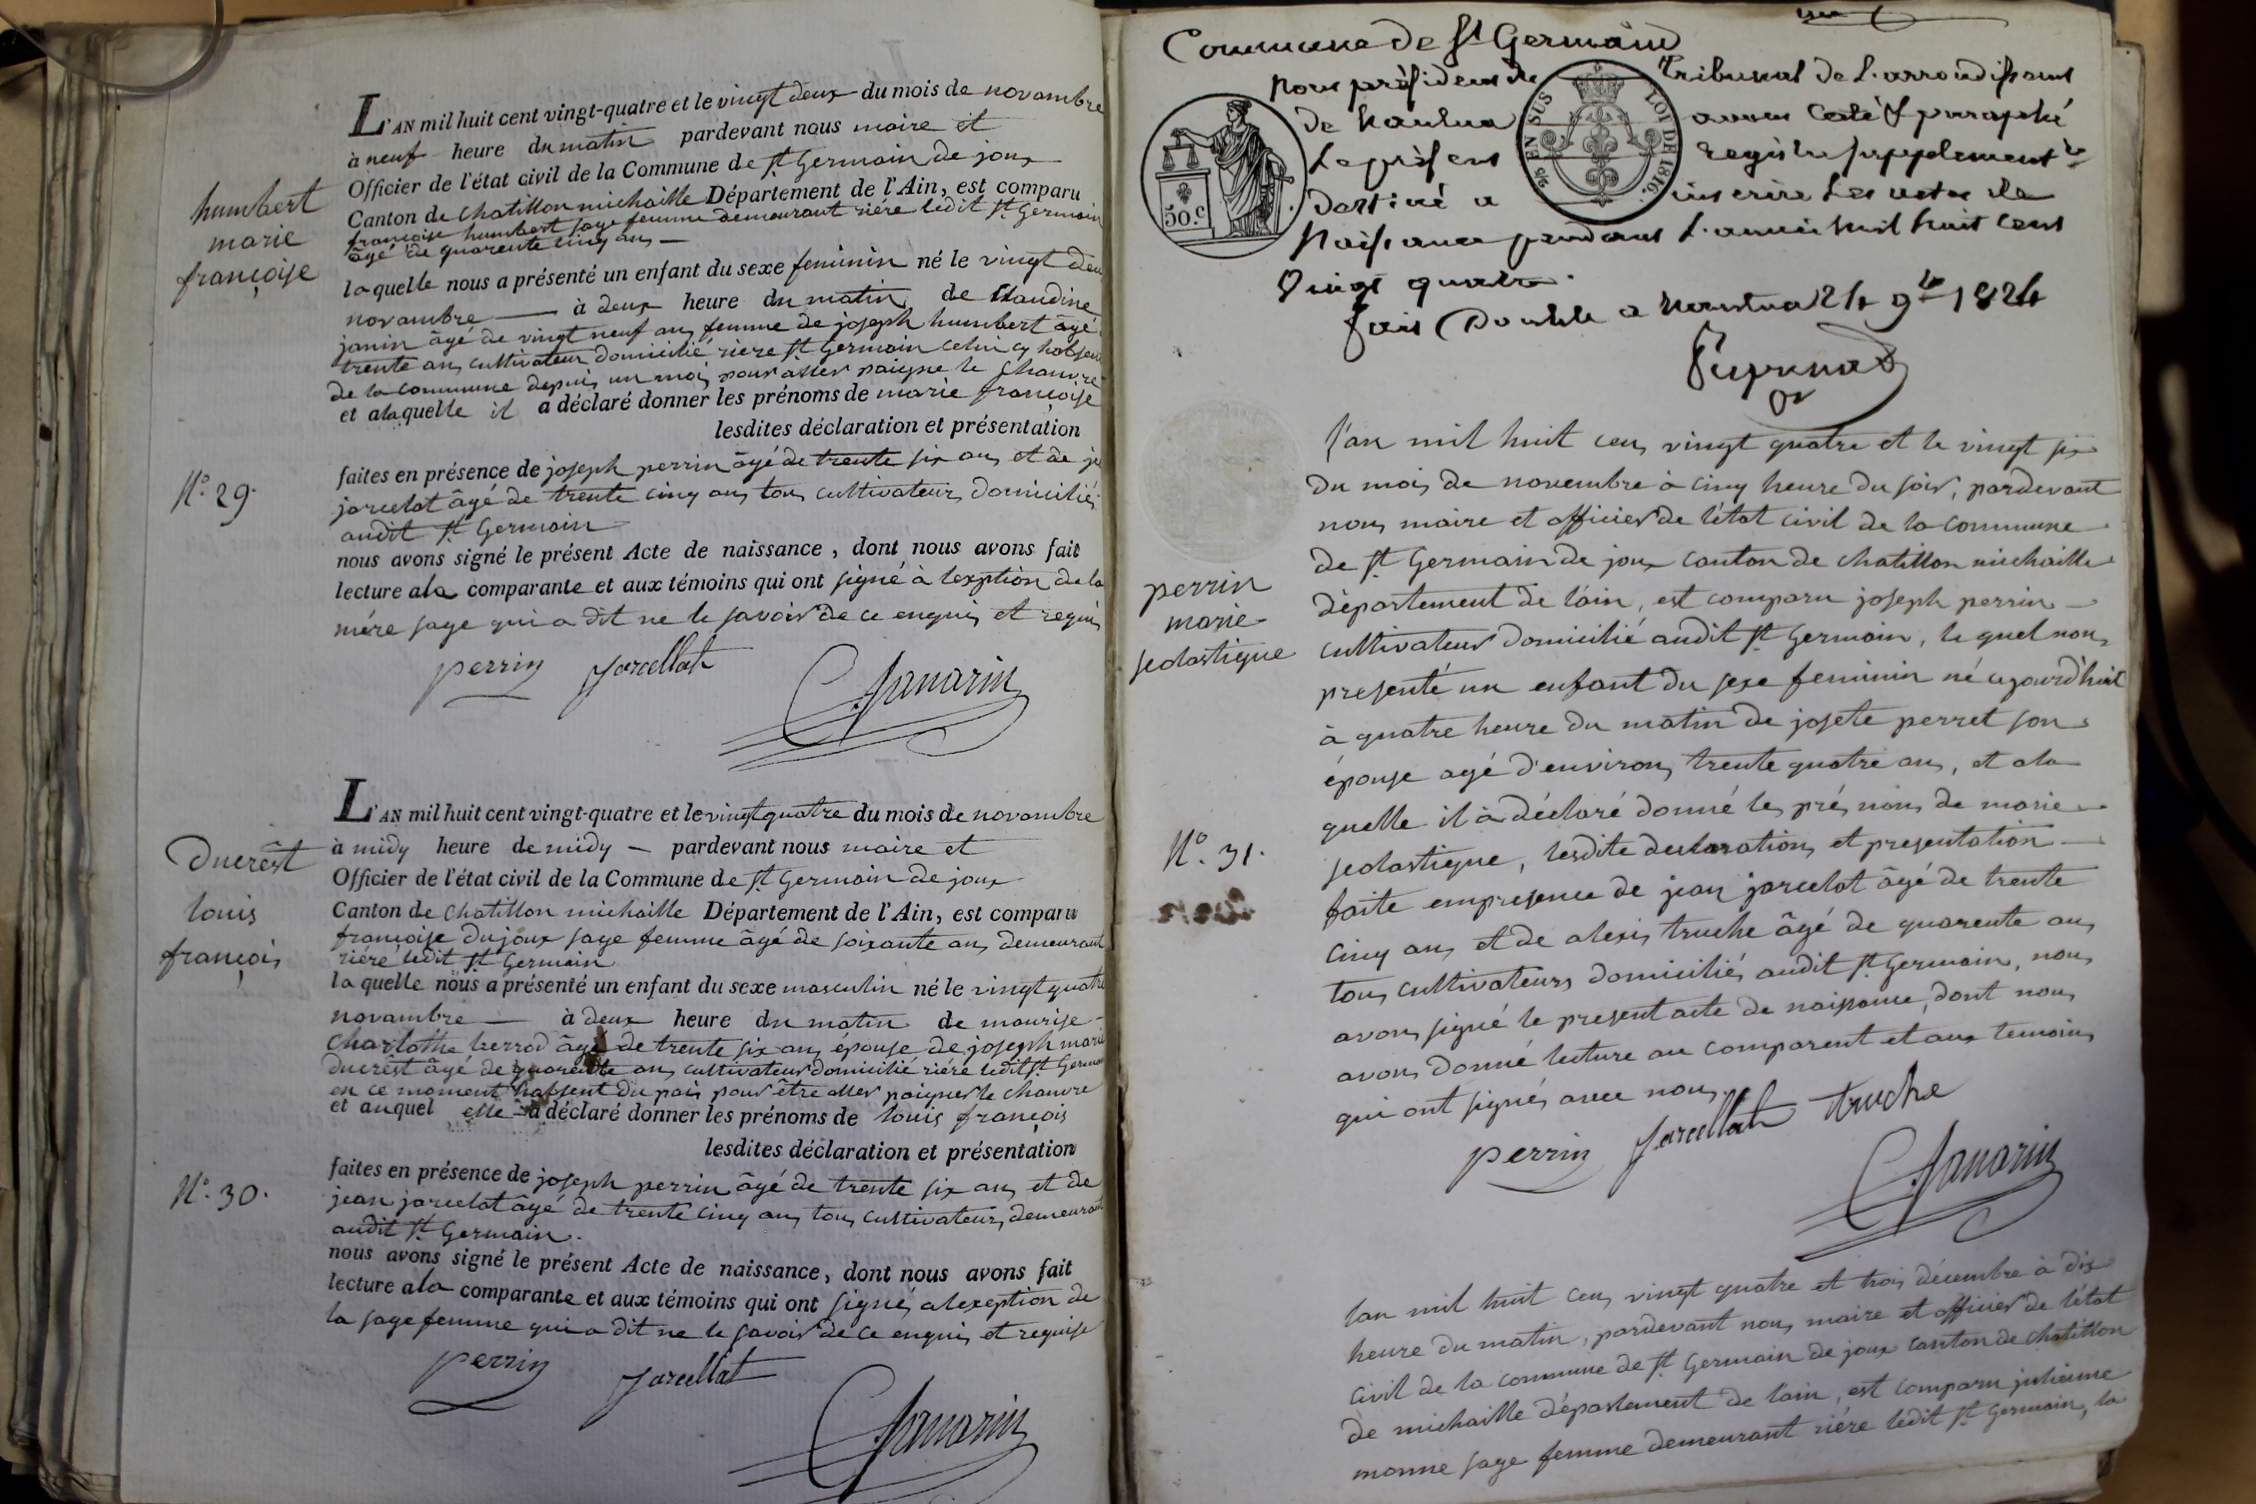 L'AN mil huit cent vingt-quatre et le vingt deux du mois de novambre
à neuf heure du matin pardevant nous maire et
Officier de l'état civil de la Commune de St Germain de joux
Canton de chatillon michaille Département de l'Ain, est comparu
françoise humbert sage femme demeurant riére ledit St Germain
âgé de quarente cinq ans
humbert
marie
françoise
laquelle nous a présenté un enfant du sexe feminin né le vingt deux
novambre à deux heure du matin de Claudine
janin âgé de vingt neuf ans femme de joseph humbert âgé
trente ans cultivateur domicilié riere St Germain celui cy habsent
de la commune depuis un mois pour aller paigne le chanvre
et alaquelle il a déclaré donner les prénoms de marie françoise
lesdites déclaration et présentation
No. 29.
faites en présence de joseph perrin âgé de trente six ans et de
jarcelot âgé de trente cinq ans tous cultivateurs domiciliés
audit St Germain
nous avons signé le présent Acte de naissance, dont nous avons fait
lecture a la comparante et aux témoins qui ont signé à lexption de la
mére sage qui a dit ne le savoir de ce enquis et requis
perrin Jarcellat
L'AN mil huit cent vingt-quatre et le vingt quatre du mois de novambre
à midy heure de midy pardevant nous maire et
Officier de l'état civil de la Commune de St Germain de joux
Canton de chatillon michaille Département de l'Ain, est comparu
françoise dujoux sage femme âgé de soixante ans demeurant
riére ledit St Germain
Ducrêst
louis
françois
la quelle nous a présenté un enfant du sexe masculin né le vingt quatre
novambre à deux heure du matin de maurise
Charlothe berrod âgé de trente six ans épouse de joseph marie
ducrêst âgé de quarente ans cultivateur domicilié riére ledit St Germain
en ce moment habsent du païs pour être aller paigner le chanvre
et auquel elle a déclaré donner les prénoms de louis françois
lesdites déclaration et présentation
No. 30.
faites en présence de joseph perrin âgé de trente six ans et de
jean jarcelot âgé de trente cinq ans tous cultivateurs demeurant
audit St Germain.
nous avons signé le présent Acte de naissance, dont nous avons fait
lecture a la comparante et aux témoins qui ont signés alexeption de
la sage femme qui a dit ne le savoir de ce enquis et requise
perrin Jarcellat
Commune de St Germain
Nous président du Tribunal de l'arrondissement
de Nantua avons coté & paraphé
Le présent registre supplementre
destiné a inscrire les actes de
Naissance pendant l'année mil huit cent
Vingt quatre.
fait Double a Nantua 24 9bre 1824
50.c
25 EN SUS
LOI DE 1816.
l'an mil huit cens vingt quatre et le vingt six
du mois de novembre à cinq heure du soir, pardevant
nous maire et officier de l'état civil de la commune
de St Germain de joux canton de chatillon michaille
département de l'ain, est comparu joseph perrin
cultivateur domicilié audit St Germain, le quel nous
presenté un enfant du sexe feminin né aujourd'huit
à quatre heure du matin de josete perret son
épouse agé d'environs trente quatre ans, et ala
quelle il à déclaré donné les pré noms de marie
scolastique, lesdite declarations et presentation
faite empresence de jean jarcelot âgé de trente
cinq ans et de alexis truche âgé de quarente ans
tous cultivateurs domiciliés audit St Germain, nous
avons signé le present acte de naissance, dont nous
avons donné lecture au comparent et aux temoins
qui ont signés avec nous
perrin
marie
scolastique
No. 31.
perrin Jarcellat truche
lan mil huit cens vingt quatre et trois décembre à dix
heure du matin, pardevant nous maire et officier de l'état
civil de la commune de St Germain de joux canton de chatillon
de michaille département de l'ain, est comparu julienne
monne sage femme demeurant riére ledit St Germain, la